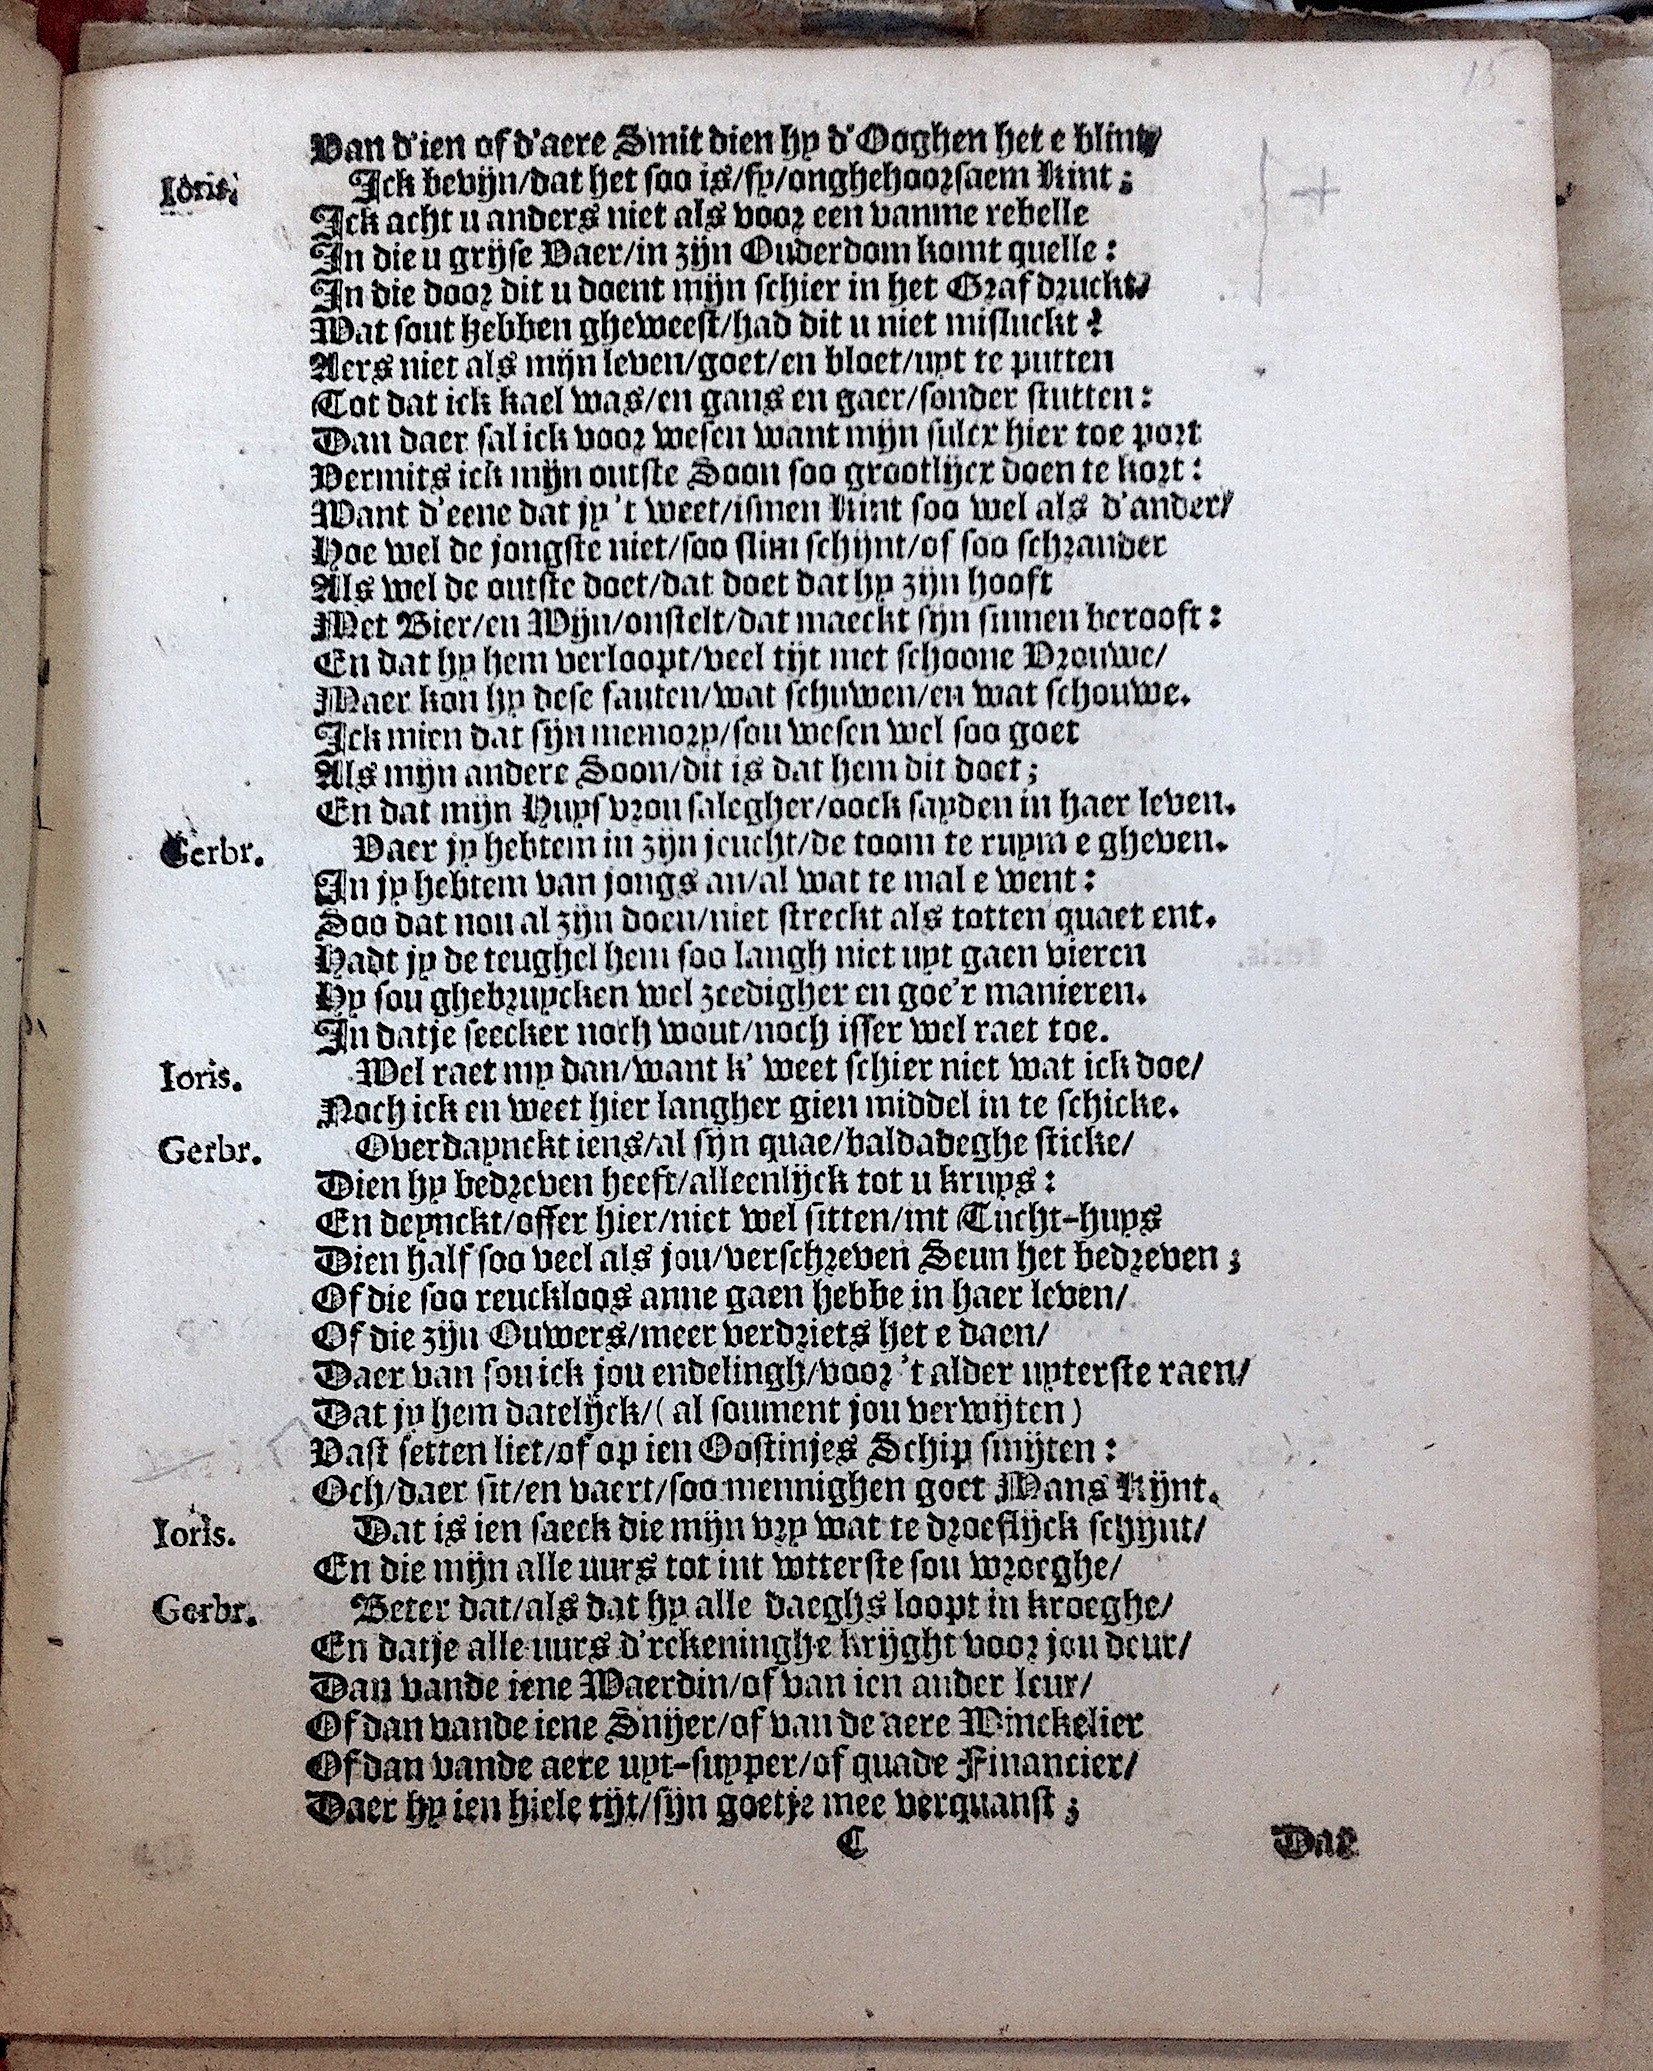 15
Van d'ien of d'aere Smit dien hy d'Ooghen het e blint/
Ioris. Ick bevijn/dat het soo is/fy/onghehoorsaem Kint;
Ick acht u anders niet als voor een vanme rebelle
In die u grijse Vaer/in zijn Ouderdom komt quelle:
In die door dit u doent mijn schier in het Graf druckt/
Wat sout hebben gheweest/had dit u niet misluckt?
Aers niet als mijn leven/goet/en bloet/uyt te putten
Tot dat ick kael was/en gans en gaer/sonder stutten:
Dan daer sal ick voor wesen want mijn sulcx hier toe port
Vermits ick mijn outste Soon soo grootlijcx doen te kort:
Want d'eene dat jy 't weet/ismen Kint soo wel als d'ander/
Hoe wel de jongste niet/soo slim schijnt/of soo schrander
Als wel de outste doet/dat doet dat hy zijn hooft
Met Bier/en Wijn/onstelt/dat maeckt sijn sinnen berooft:
En dat hy hem verloopt/veel tijt met schoone Vrouwe/
Maer kon hy dese fauten/wat schuwen/en wat schouwe.
Ick mien dat sijn memory/sou wesen wel soo goet
Als mijn andere Soon/dit is dat hem dit doet;
En dat mijn Huysvrou salegher/oock sayden in haer leven.
Gerbr. Vaer jy hebtem in zijn jeucht/de toom te ruym e gheven.
In jy hebtem van jongs an/al wat te mal e went:
Soo dat nou al zijn doen/niet streckt als totten quaet ent.
Hadt jy de teughel hem soo langh niet uyt gaen vieren
Hy sou ghebruycken wel zeedigher en goe'r manieren.
In datje seecker noch wout/noch isser wel raet toe.
Ioris. Wel raet my dan/want k' weet schier niet wat ick doe/
Noch ick en weet hier langher gien middel in te schicke.
Gerbr. Overdaynckt iens/al sijn quae/baldadeghe sticke/
Dien hy bedreven heeft/alleenlijck tot u kruys:
En deynckt/offer hier/niet wel sitten/int Tucht-huys
Dien half soo veel als jou/verschreven Seun het bedreven;
Of die soo reuckloos anne gaen hebbe in haer leven/
Of die zijn Ouwers/meer verdriets het e daen/
Daer van sou ick jou endelingh/voor 't alder uyterste raen/
Dat jy hem datelijck/(al soument jou verwijten)
Vast setten liet/of op ien Oostinjes Schip smijten:
Och/daer sit/en vaert/soo mennighen goet Mans Kijnt.
Ioris. Dat is ien saeck die mijn vry wat te droeflijck schijnt/
En die mijn alle uurs tot int wtterste sou wroeghe/
Gerbr. Beter dat/als dat hy alle daeghs loopt in kroeghe/
En datje alle uurs d'rekeninghe krijght voor jou deur/
Dan vande iene Waerdin/of van ien ander leur/
Of dan vande iene Snijer/of van de aere Winckelier
Of dan vande aere uyt-suyper/of quade Financier/
Daer hy ien hiele tijt/sijn goetje mee verquanst;
C Dat